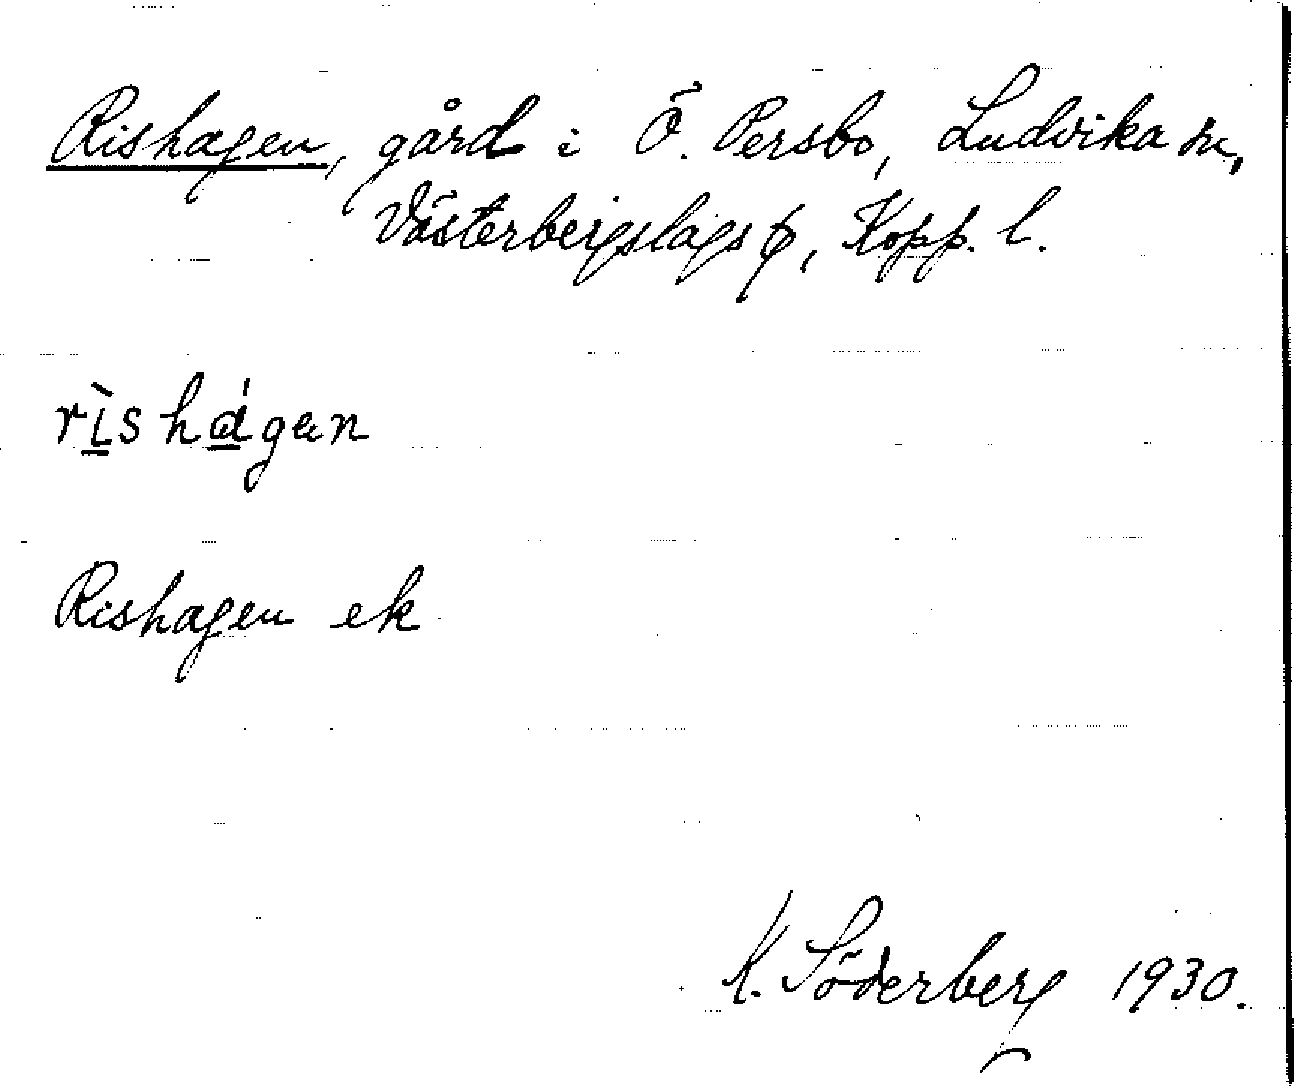 Rishagen, gård i Ö. Persbo, Ludvika sn,
Västerbergslags
Kopp. l.
rìshágan
Rishagen ek
K. Söderberg 1930.